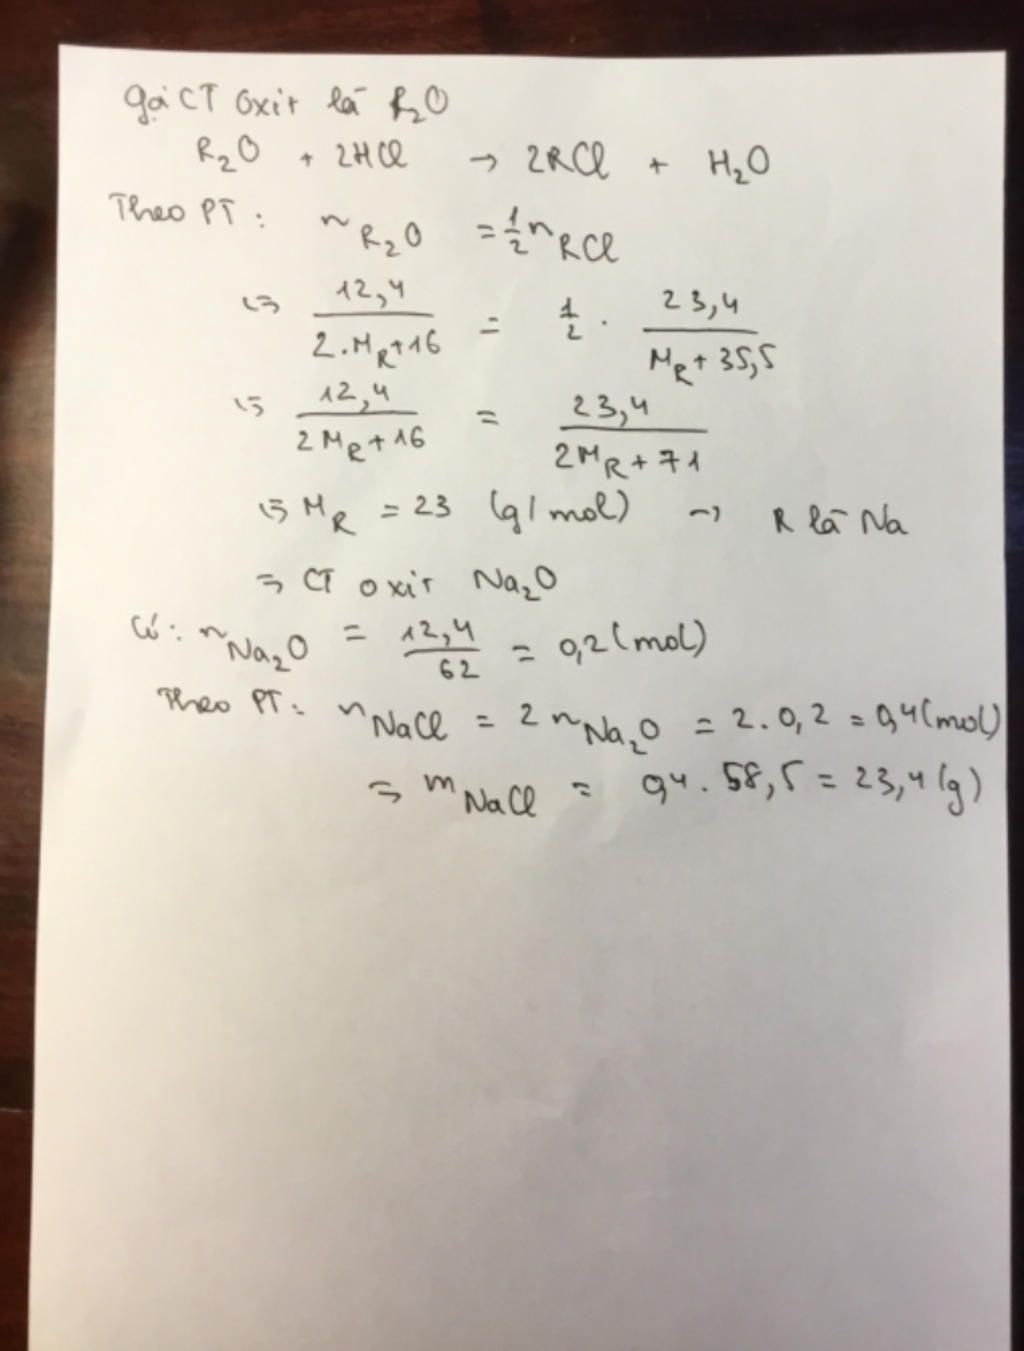 Gọi CT oxit là R₂O
R₂O + 2HCl → 2RCl + H₂O
Theo PT: n R₂O = 1/2 n RCl
⇔ 12,4 / (2.M_R + 16) = 1/2 . 23,4 / (M_R + 35,5)
⇔ 12,4 / (2M_R + 16) = 23,4 / (2M_R + 71)
⇔ M_R = 23 (g/mol) → R là Na
⇒ CT oxit Na₂O
Có: n Na₂O = 12,4 / 62 = 0,2 (mol)
Theo PT: n NaCl = 2 n Na₂O = 2.0,2 = 0,4 (mol)
⇒ m NaCl = 0,4 . 58,5 = 23,4 (g)